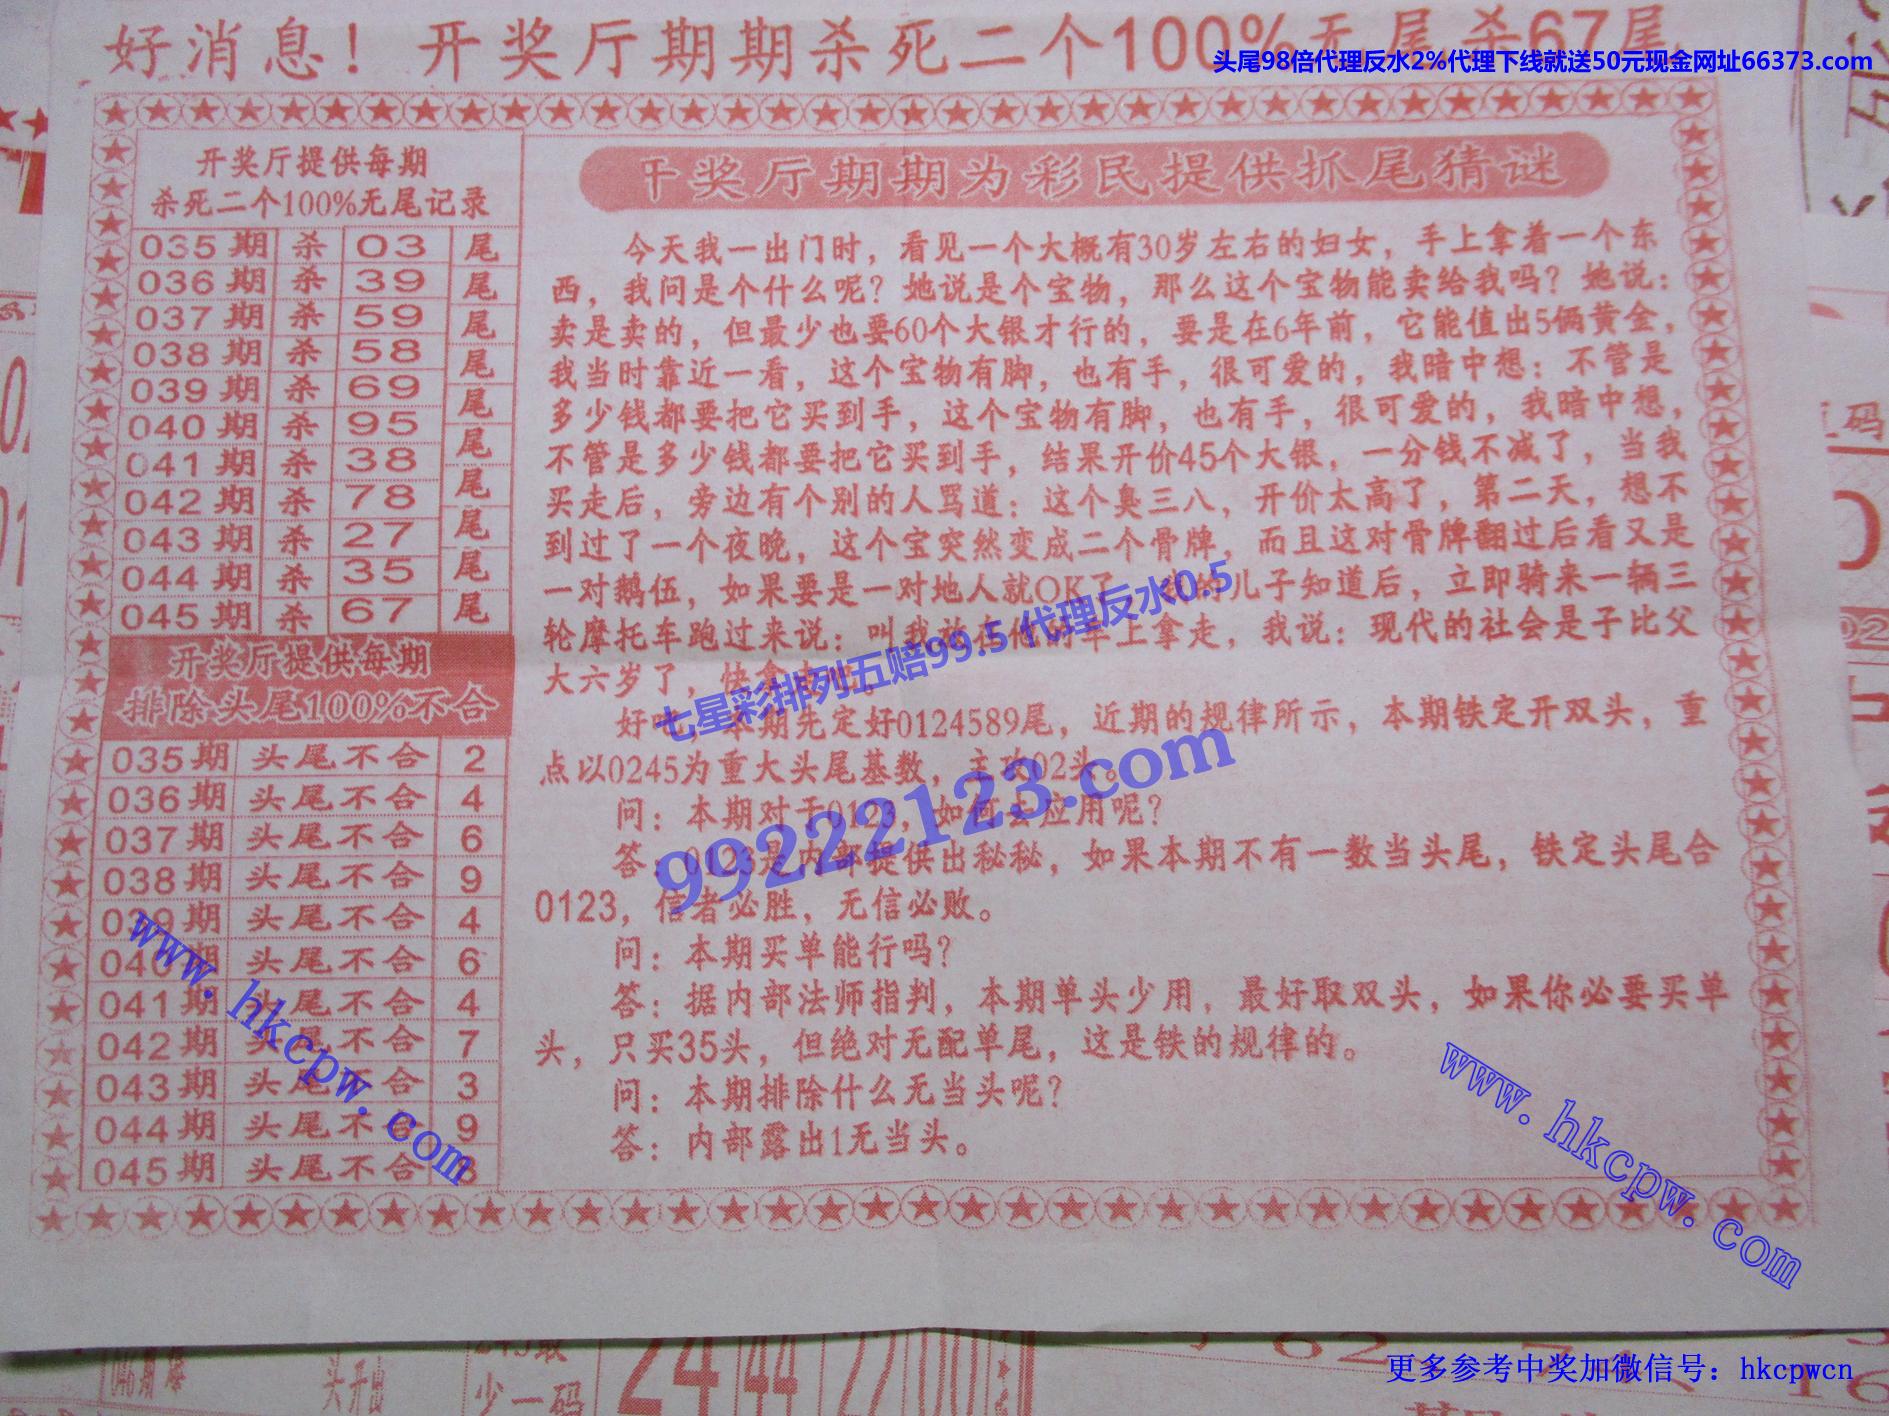 好消息！开奖厅期期杀死二个100%无尾.杀67尾
头尾98倍代理反水2%代理下线就送50元现金网址66373.com
开奖厅提供每期
杀死二个100%无尾记录
035期 杀 03 尾
036期 杀 39 尾
037期 杀 59 尾
038期 杀 58 尾
039期 杀 69 尾
040期 杀 95 尾
041期 杀 38 尾
042期 杀 78 尾
043期 杀 27 尾
044期 杀 35 尾
045期 杀 67 尾
开奖厅提供每期
排除头尾100%不合
035期 头尾不合 2
036期 头尾不合 4
037期 头尾不合 6
038期 头尾不合 9
039期 头尾不合 4
040期 头尾不合 6
041期 头尾不合 4
042期 头尾不合 7
043期 头尾不合 3
044期 头尾不合 9
045期 头尾不合
奖厅期期为彩民提供抓尾猜谜
今天我一出门时，看见一个大概有30岁左右的妇女，手上拿着一个东
西，我问是个什么呢？她说是个宝物，那么这个宝物能卖给我吗？她说：
卖是卖的，但最少也要60个大银才行的，要是在6年前，它能值出5俩黄金，
我当时靠近一看，这个宝物有脚，也有手，很可爱的，我暗中想：不管是
多少钱都要把它买到手，这个宝物有脚，也有手，很可爱的，我暗中想，
不管是多少钱都要把它买到手，结果开价45个大银，一分钱不减了，当我
买走后，旁边有个别的人骂道：这个臭三八，开价太高了，第二天，想不
到过了一个夜晚，这个宝突然变成二个骨牌，而且这对骨牌翻过后看又是
一对鹅伍，如果要是一对地人就OK了，我的儿子知道后，立即骑来一辆三
轮摩托车跑过来说：叫我放任他的车上拿走，我说：现代的社会是子比父
大六岁了，快拿走吧。
好吧，本期先定好0124589尾，近期的规律所示，本期铁定开双头，重
点以0245为重大头尾基数，主攻02头。
问：本期对于0123，如何去应用呢？
答：0123是内部提供出秘秘，如果本期不有一数当头尾，铁定头尾合
0123，信者必胜，无信必败。
问：本期买单能行吗？
答：据内部法师指判，本期单头少用，最好取双头，如果你必要买单
头，只买35头，但绝对无配单尾，这是铁的规律的。
问：本期排除什么无当头呢？
答：内部露出1无当头。
七星彩排列五赔99.5 代理反水0.5
99222123.com
www.hkcpw.com
www.hkcpw.com
头开出
少一码
24 44 22 00
更多参考中奖加微信号：hkcpwcn